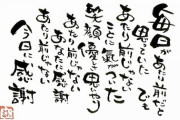 毎日があたり前だと
思っていた でも
あたり前じゃない
ことに気がついた
笑顔 優しさ 思いやり
あたり前じゃない
あなたに感謝
あたり前じゃない
今日に感謝